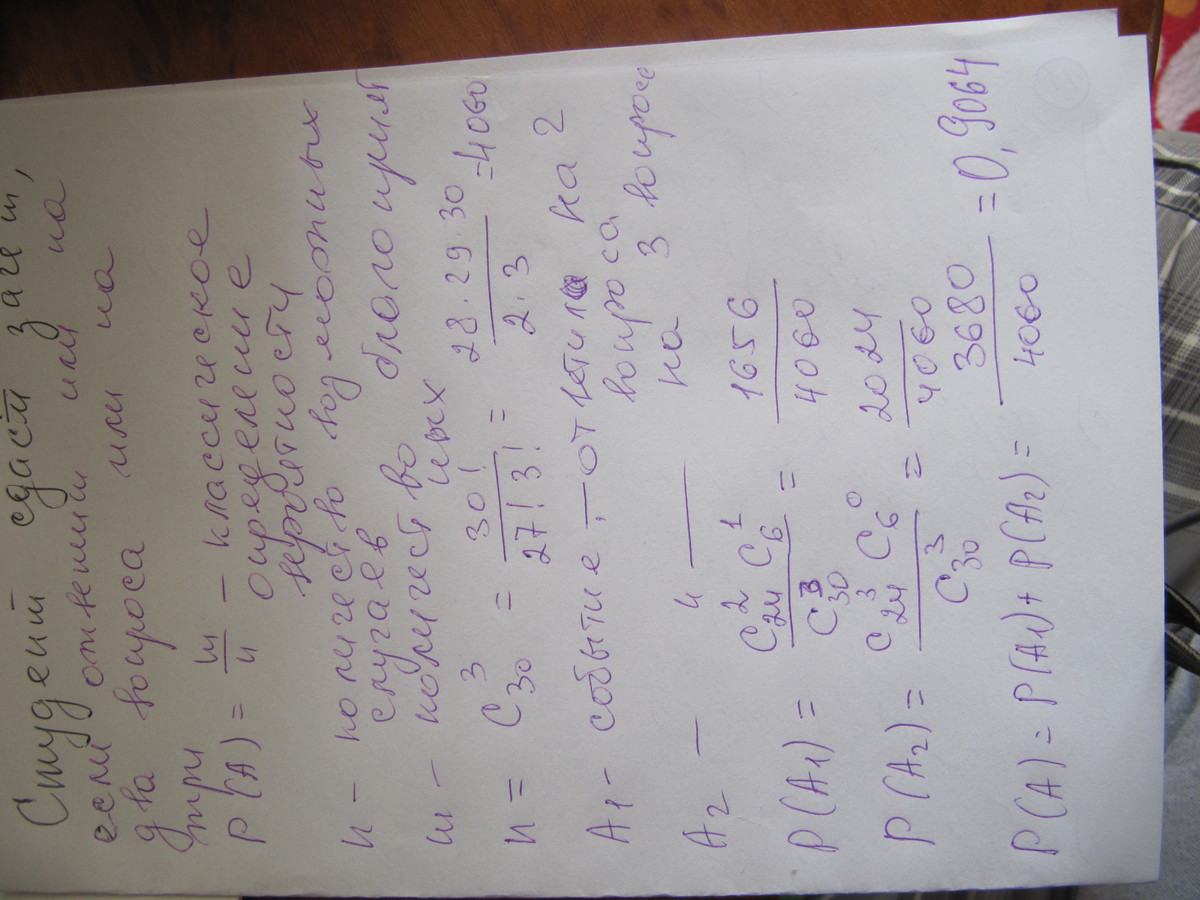 Студент сдаст зачет,
если ответит или на
два вопроса или на
три
P(A) = m/n — классическое
определение
вероятности
n — количество возможных
случаев
m — количество благоприят
ных
n = C₃₀³ = 30!/(27! 3!) = (28·29·30)/(2·3) = 4060
A₁ - событие :- ответил на 2
вопроса
A₂ — " —— на 3 вопроса
P(A₁) = (C₂₄² C₆¹)/C₃₀³ = 1656/4060
P(A₂) = (C₂₄³ C₆⁰)/C₃₀³ = 2024/4060
P(A) = P(A₁) + P(A₂) = 3680/4060 = 0,9064